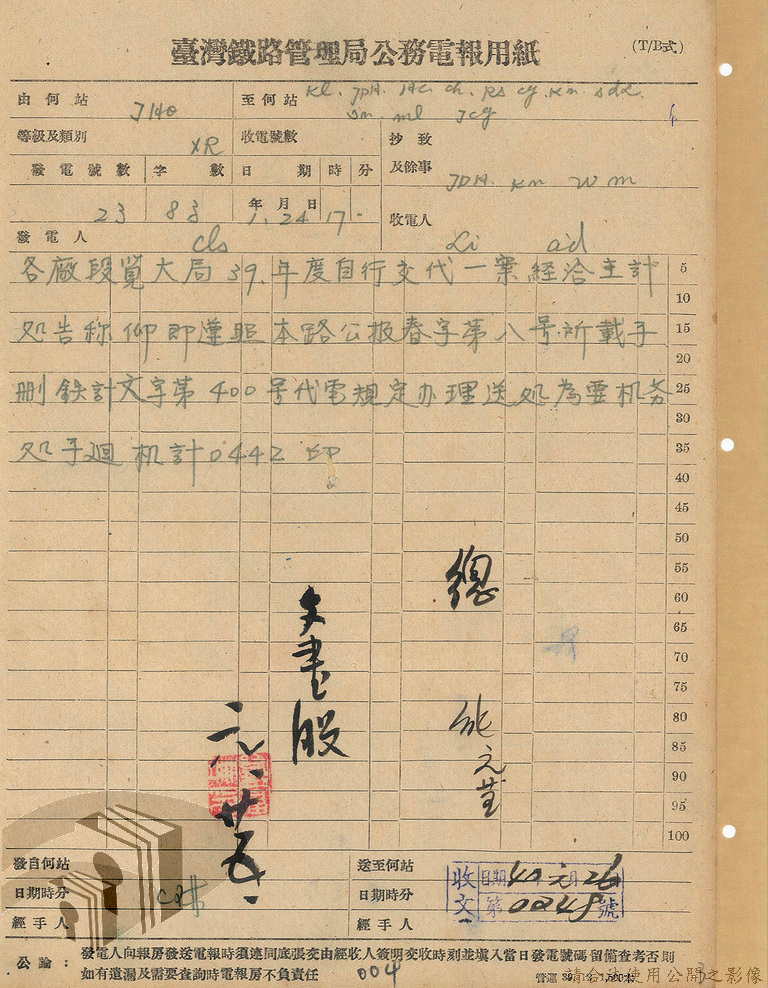 臺灣鐵路管理局公務電報用紙
(T/B式)
由何站
至何站 KL. JDA. HC. ch. Rs cg. Kn. sdk.
ml
等級及類別 XR
收電號數
抄致
及餘事 JDA. Kn
發電號數 字數 日期時分
23 83 年月日 1.24 17
發電人 cls
收電人 ad
各廠段覽大局39.年度自行交代一案經洽主計 5
10
処告称仰即遵照本路公报春字第八号所載子 15
20
刪鉄計文字第400号代電規定办理送処為要机务 25
30
処子迴机計0442印 35
40
45
50
55
總 60
65
文書股 70
75
80
元 85
90
廿五 95
100
發自何站
送至何站
日期時分
日期時分
經手人
經手人
收文 日期 40元月26
第0248號
公論：發電人向報房發送電報時須連同底張交由經收人簽明交收時刻並填入當日發電號碼留備查考否則
如有遺漏及需要查詢時電報房不負責任
004
請合法使用公開之影像